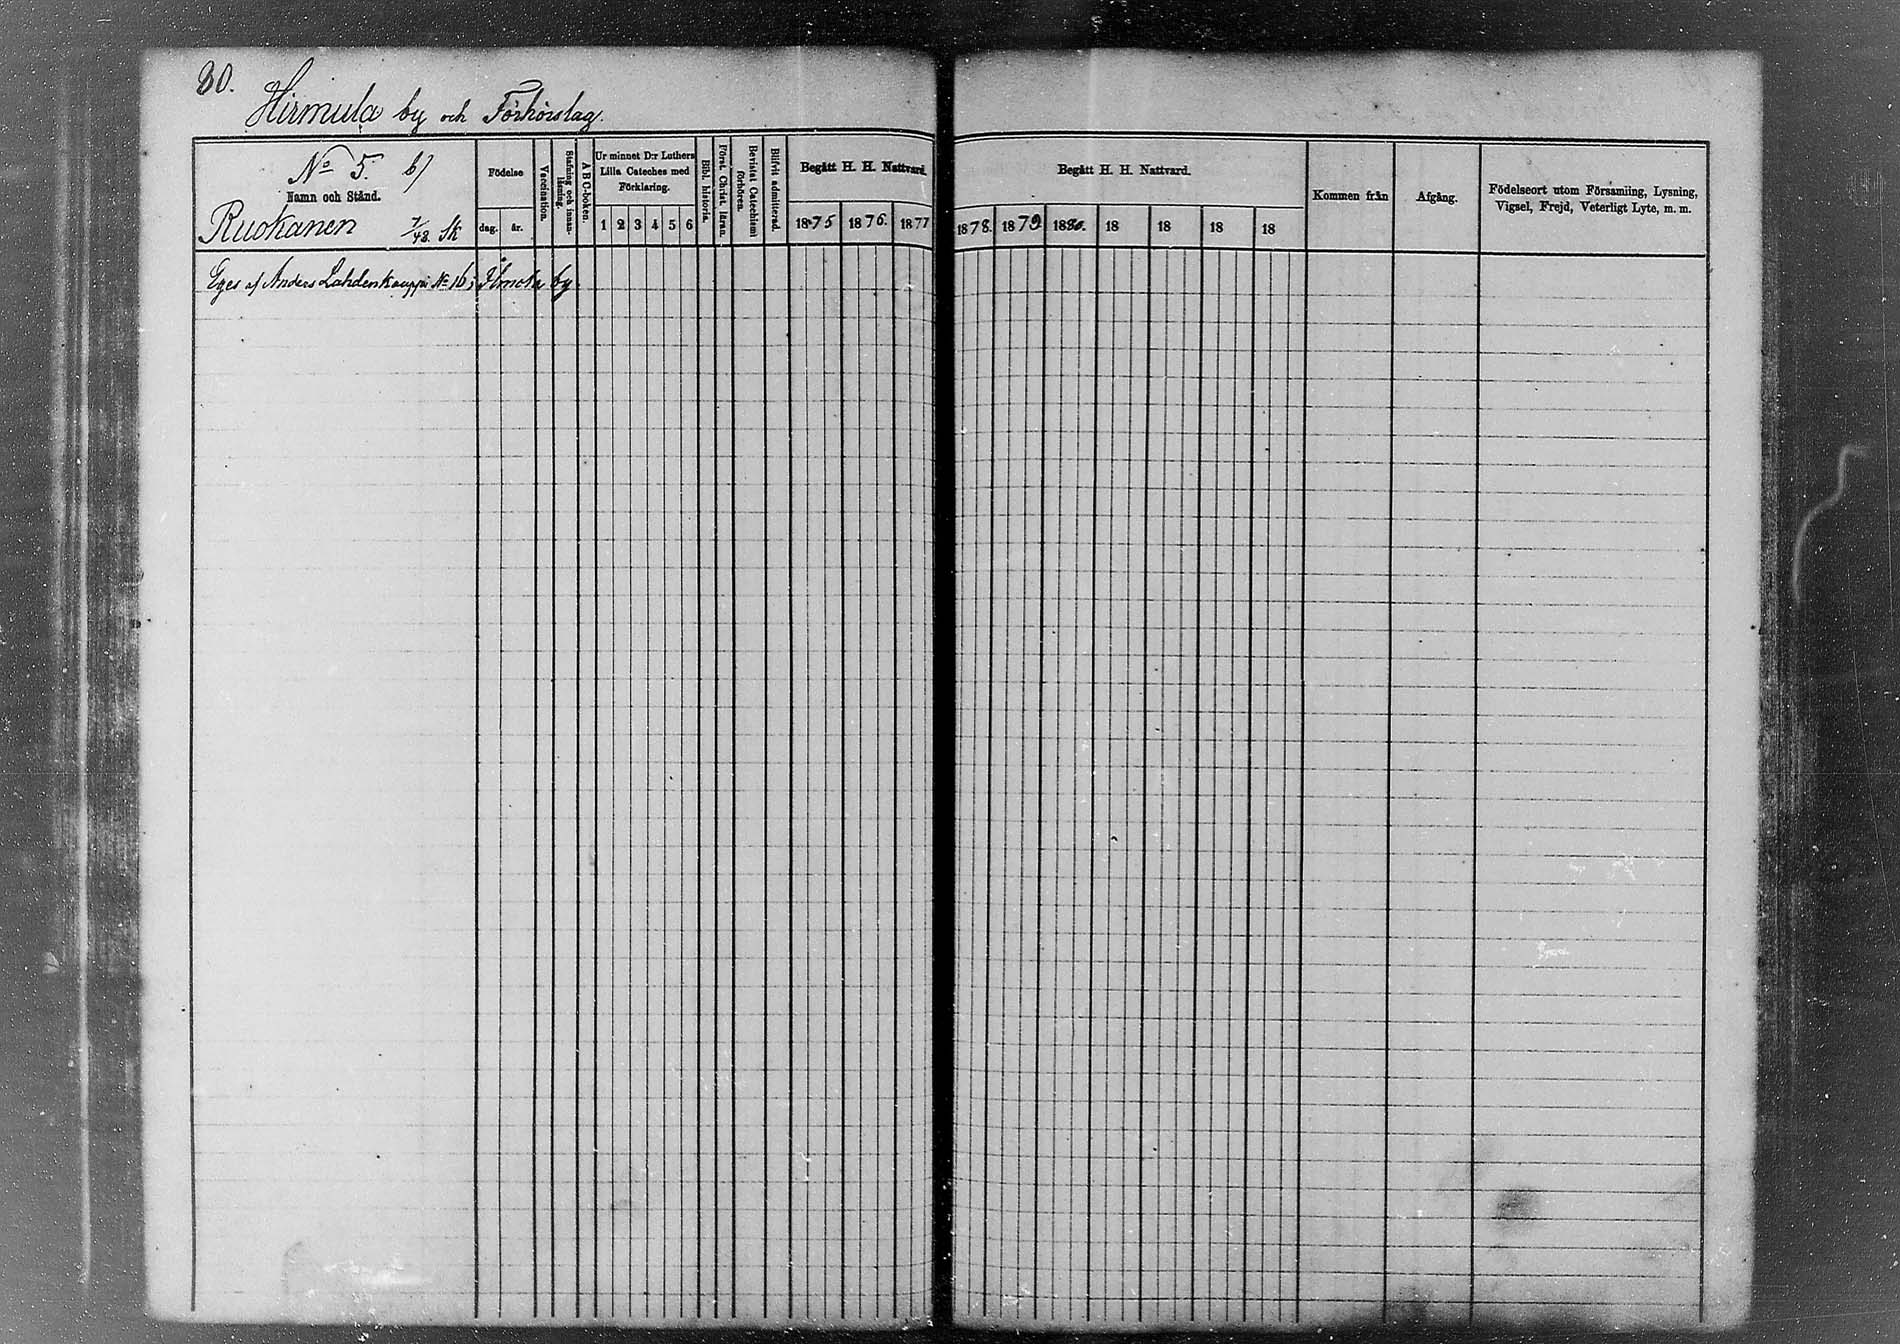 80.
Hirmula by och Förhörslag.
No 5. b)
Namn och Stånd.
Ruokanen 7/48. Sk
Födelse
dag. år.
Vaccination.
Stafning och innan-läsning.
A B C-boken.
Ur minnet D:r Luthers
Lilla Cateches med
Förklaring.
1 2 3 4 5 6
Bibl. historia.
Först. Christ. läran.
Bevistat Catechismi förhören.
Blifvit admitterad.
Begått H. H. Nattvard.
1875 1876. 1877
Begått H. H. Nattvard.
1878. 1879. 1880. 18 18 18 18
Kommen från
Afgång.
Födelseort utom Församling, Lysning,
Vigsel, Frejd, Veterligt Lyte, m. m.
Eges af Anders Lahdenkauppi No 16, by